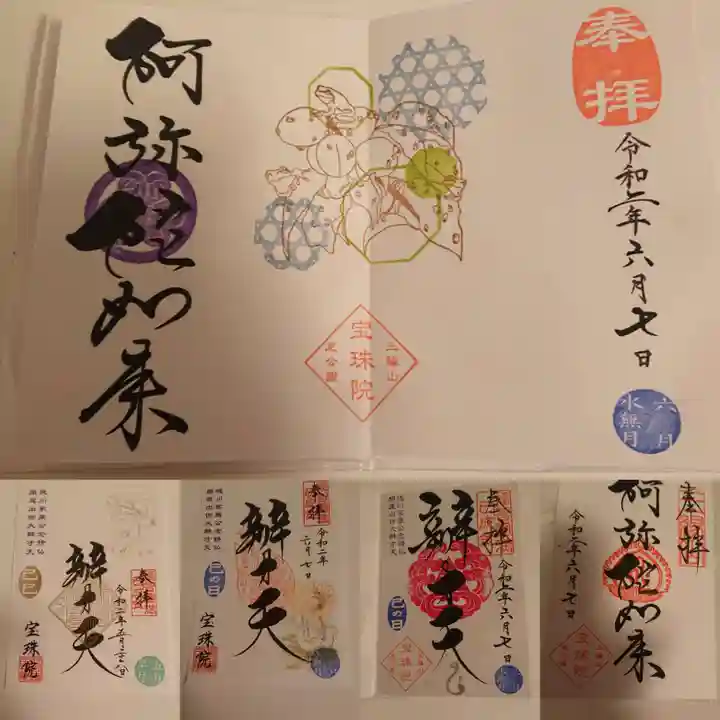 奉拝
令和二年六月七日
六月
水無月
三縁山
宝珠院
芝公園
阿弥陀如来
奉拝
令和二年五月二十六日
辨才天
己巳
宝珠院
五月
奉拝
令和二年
六月七日
辨才天
巳の日
宝珠院
奉拝
令和二年六月七日
辨才天
巳の日
宝珠院
奉拝
阿弥陀如来
令和二年六月七日
宝珠院